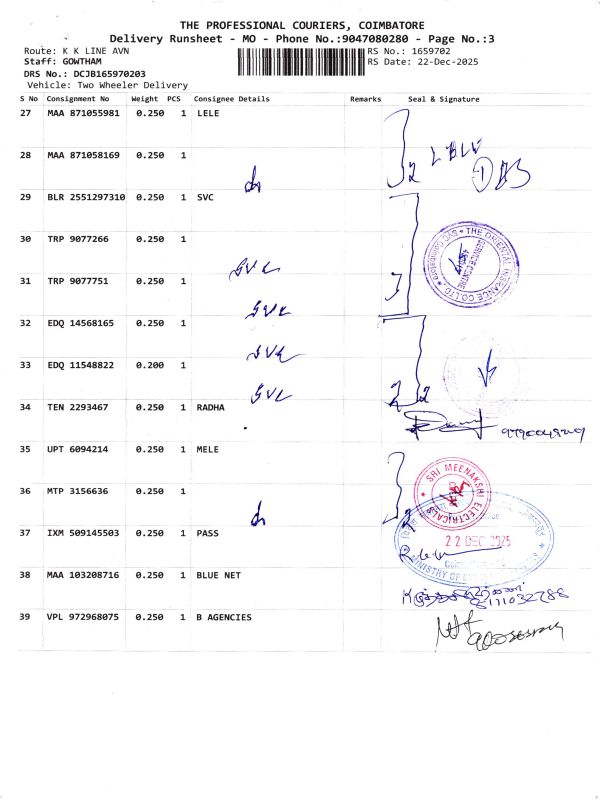 THE PROFESSIONAL COURIERS, COIMBATORE
Delivery Runsheet - MO - Phone No.:9047080280 - Page No.:3
Route: K K LINE AVN
RS No.: 1659702
Staff: GOWTHAM
RS Date: 22-Dec-2025
DRS No.: DCJB165970203
Vehicle: Two Wheeler Delivery
S No Consignment No Weight PCS Consignee Details Remarks Seal & Signature
27 MAA 871055981 0.250 1 LELE
28 MAA 871058169 0.250 1
29 BLR 2551297310 0.250 1 SVC
30 TRP 9077266 0.250 1
THE ORIENTAL INSRANCE CO LTD
SERVICE CENTRE
31 TRP 9077751 0.250 1 SVC
32 EDQ 14568165 0.250 1 SVC
33 EDQ 11548822 0.200 1 SVC
34 TEN 2293467 0.250 1 RADHA SVC
35 UPT 6094214 0.250 1 MELE
SRI MEENAKSHI ELECTRICALS
36 MTP 3156636 0.250 1
37 IXM 509145503 0.250 1 PASS
22 DEC 2025
MINISTRY OF
38 MAA 103208716 0.250 1 BLUE NET
39 VPL 972968075 0.250 1 B AGENCIES